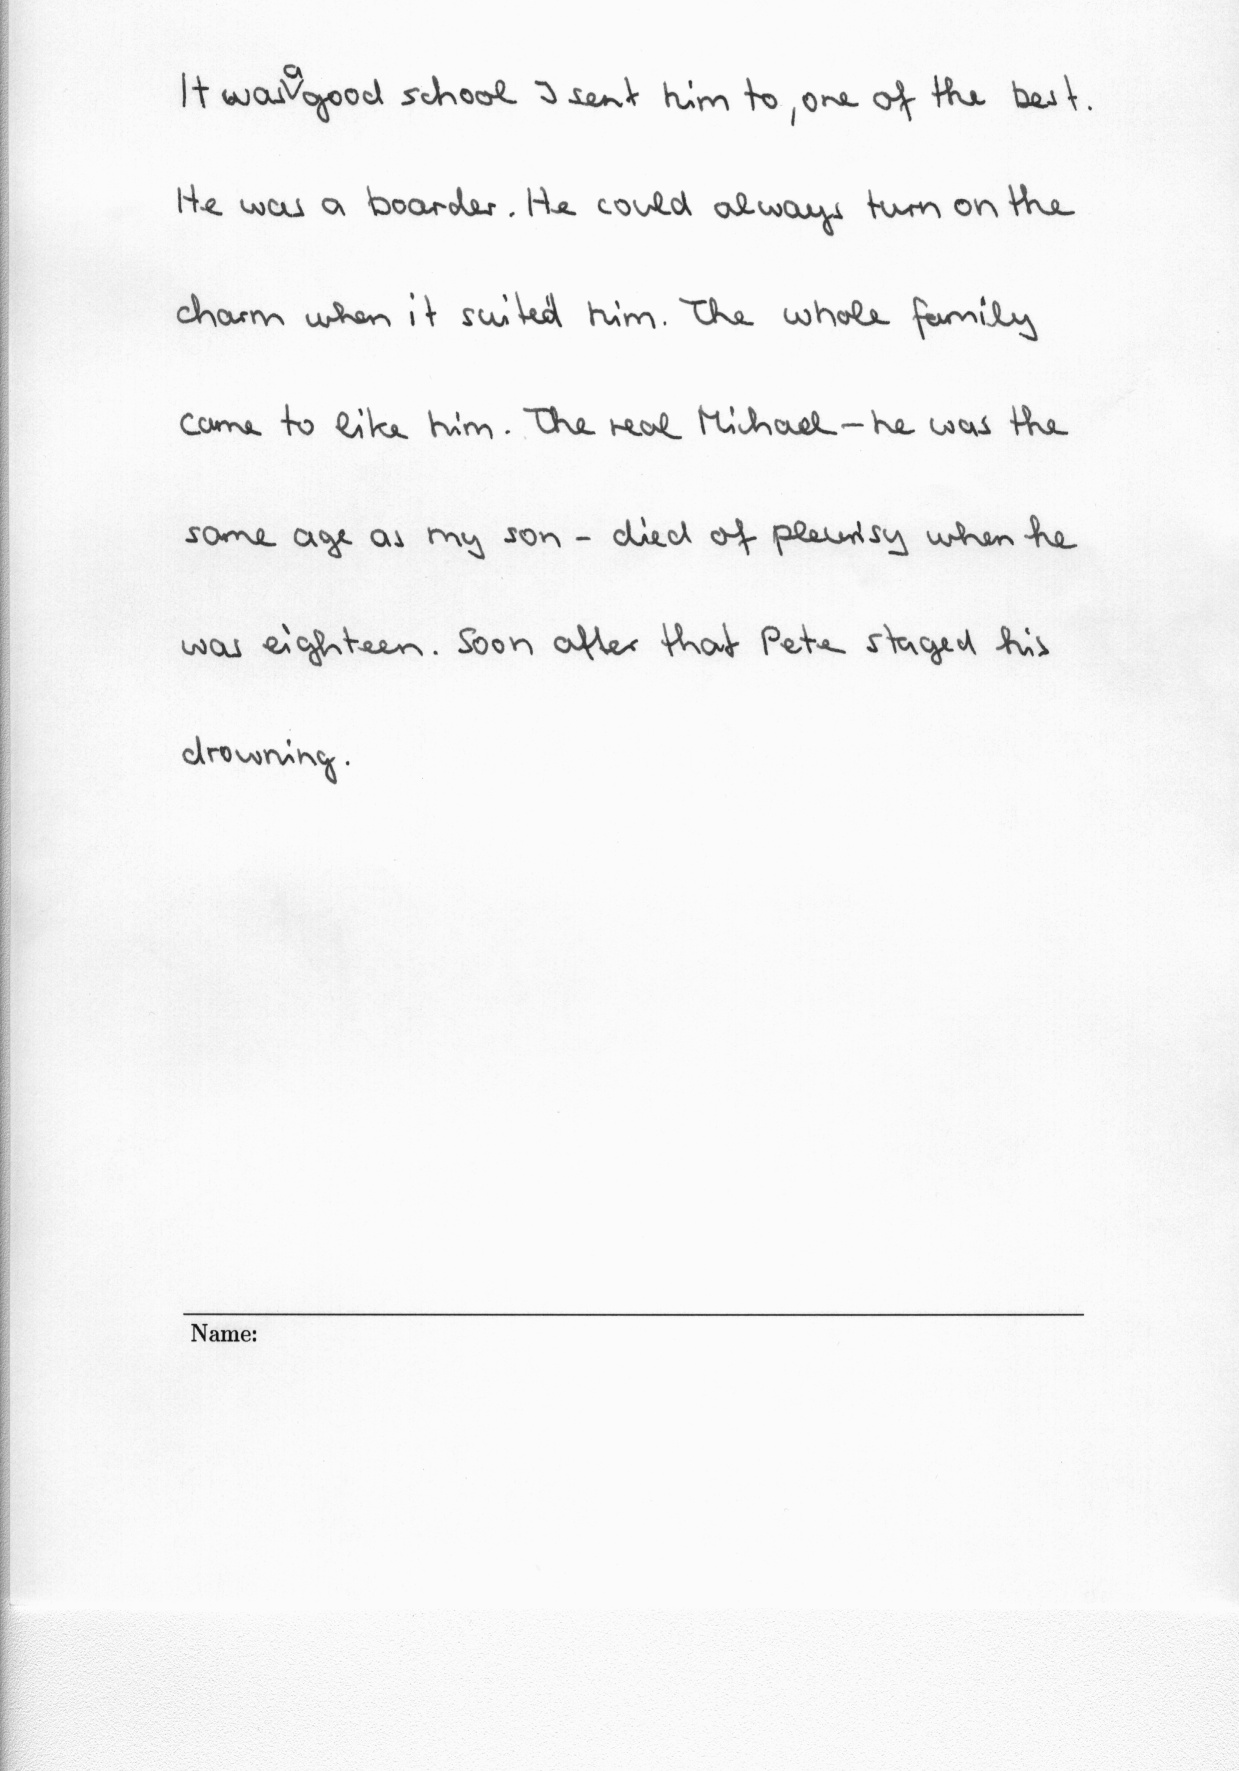 It was a good school I sent him to, one of the best.
He was a boarder. He could always turn on the
charm when it suited him. The whole family
came to like him. The real Michael - he was the
same age as my son - died of pleurisy when he
was eighteen. Soon after that Pete staged his
drowning.
Name: